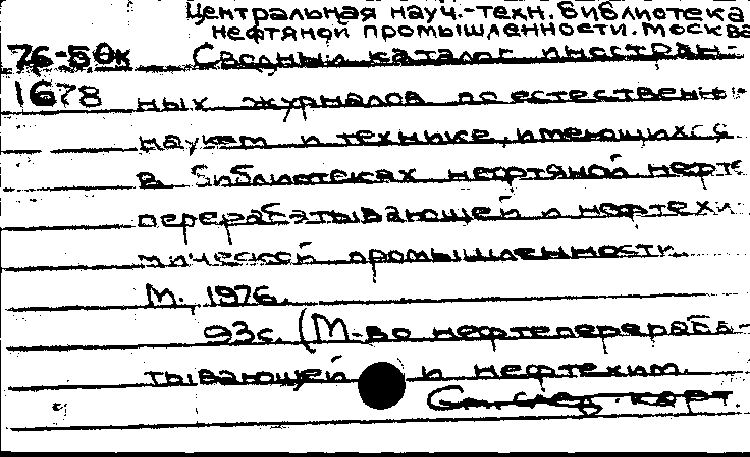 Центральная науч.-техн. библиотека
нефтяной промышленности. Москва
76-5 Өк Сводный каталог иностран-
1678 ных журналов по естественны-
наукам и технике, имеющихся
в библиотеках нефтяной нефте
перерабатывающей и нефтехи-
мической промышленности.
М., 1976.
93с. (М-во нефтеперераба-
тывающей и нефтехим.
См. след. карт.